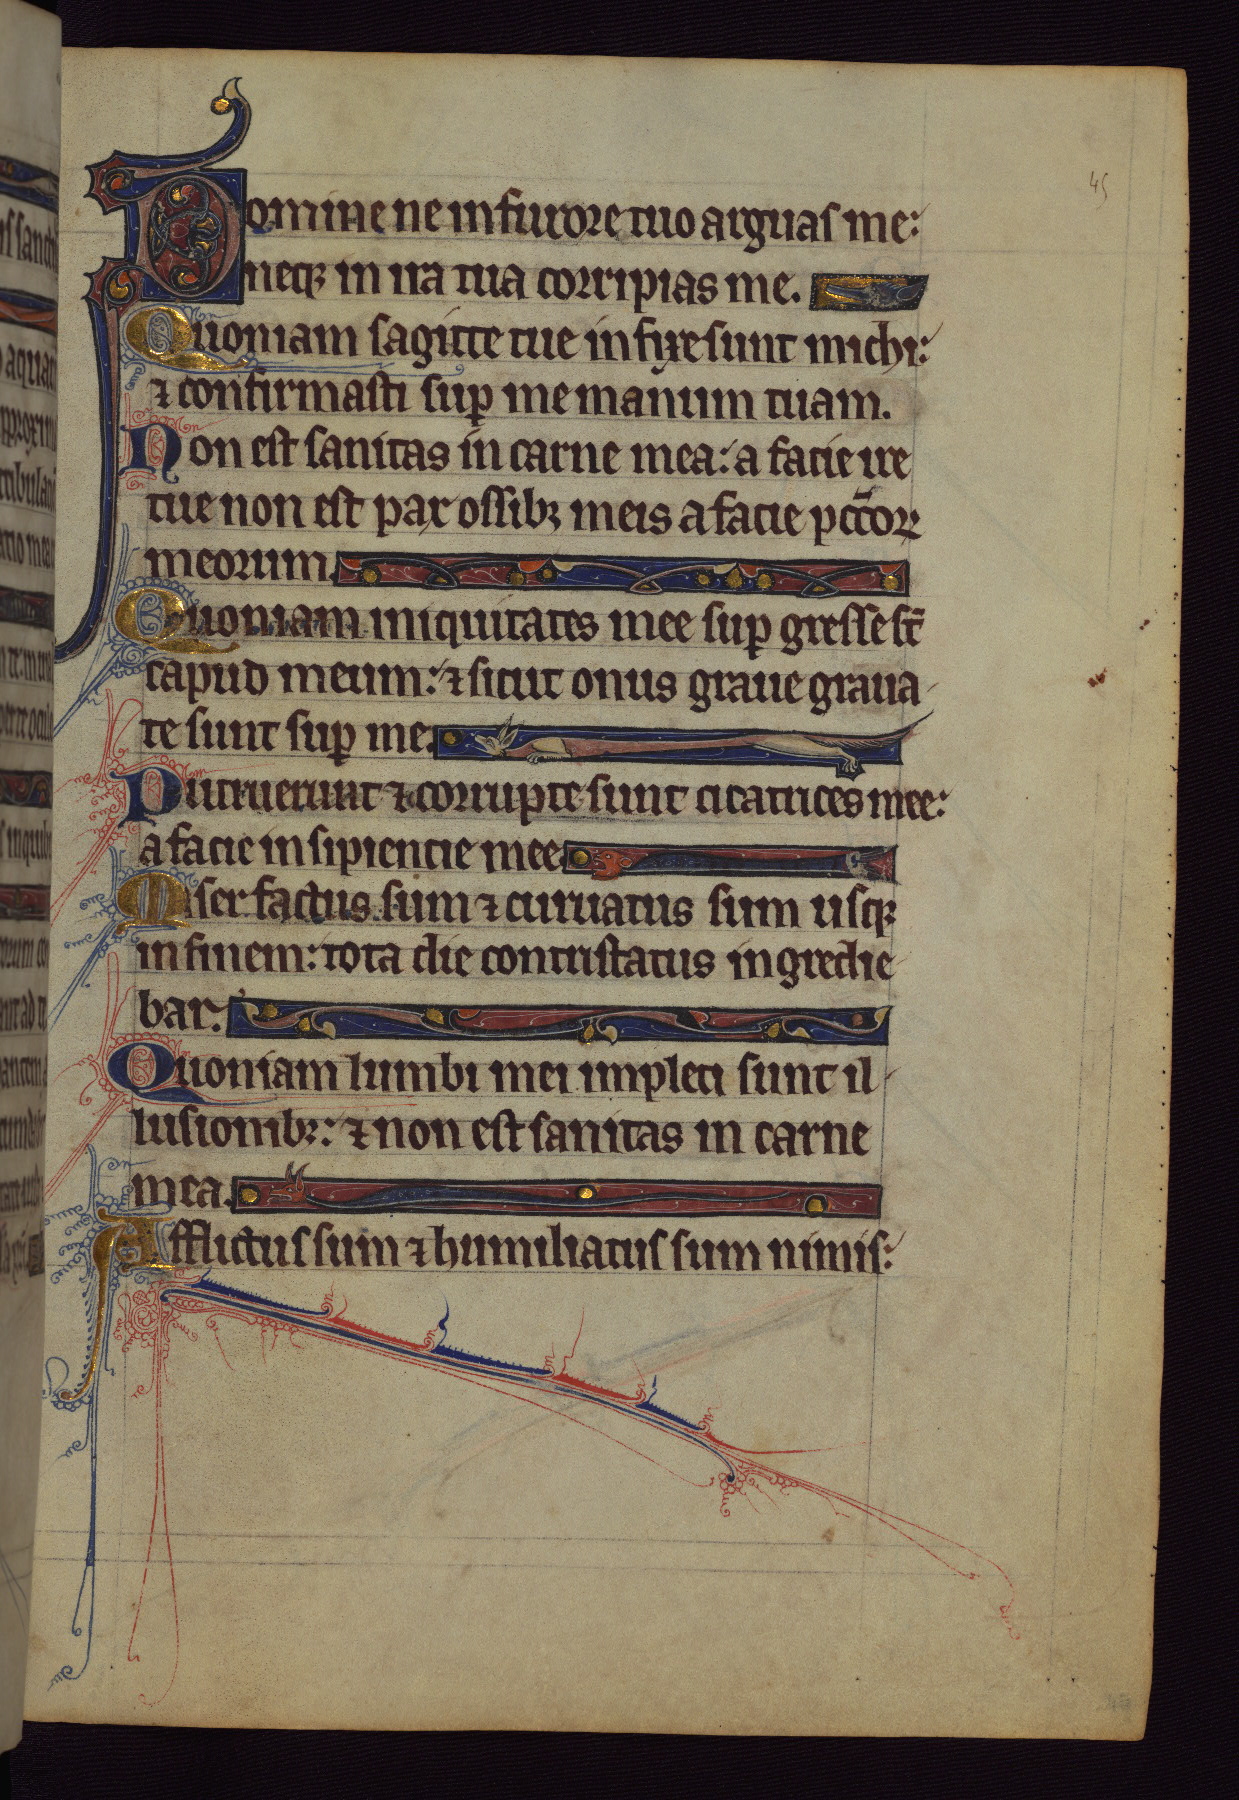 45
Domine ne in furore tuo arguas me:
neqꝫ in ira tua corripias me.
Quoniam sagitte tue infixe sunt michi:
⁊ confirmasti suꝑ me manum tuam.
Non est sanitas in carne mea: a facie ire
tue non est pax ossibꝫ meis a facie pc̄coꝝ
meorum.
Quoniam iniquitates mee suꝑ gresse st̄
capud meum: ⁊ sicut onus graue graua-
te sunt suꝑ me.
Putruerunt ⁊ corrupte sunt cicatrices mee:
a facie insipiencie mee.
Miser factus sum ⁊ curuatus sum usqꝫ
in finem: tota die contristatus ingredie-
bar.
Quoniam lumbi mei impleti sunt il-
lusionibꝫ: ⁊ non est sanitas in carne
mea.
Afflictus sum ⁊ humiliatus sum nimis: